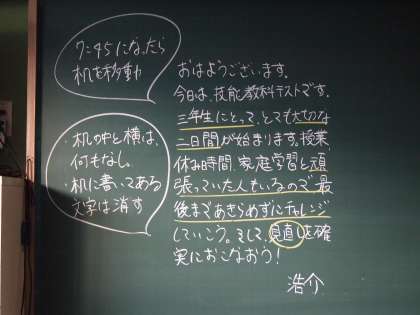 7:45になったら
机を移動
・机の中と横は、
何もなし。
・机に書いてある
文字は消す
おはようございます。
今日は、技能教科テストです。
三年生にとって、とても大切な
二日間が始まります。授業、
休み時間、家庭学習と頑
張っていた人もいるので、最
後まであきらめずにチャレンジ
していこう。そして、見直しを確
実におこなおう!
浩介